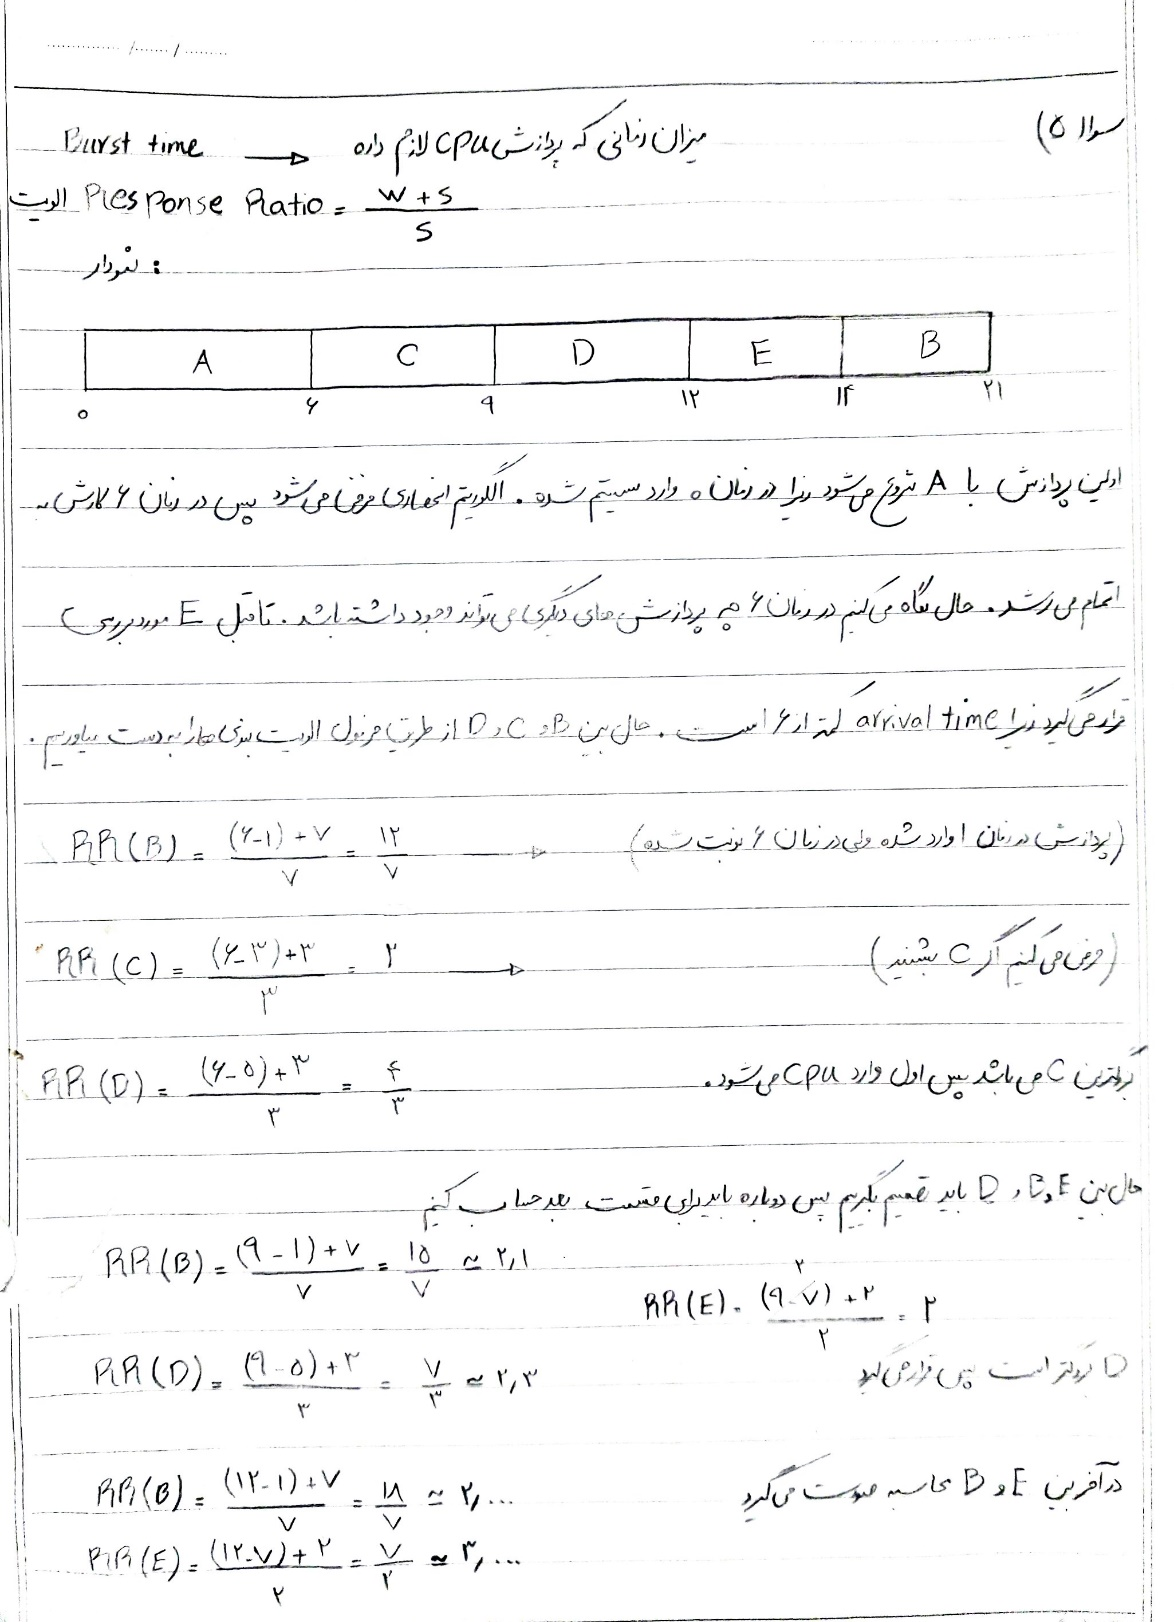 سوال ۵)
میزان زمانی که پردازش CPU لازم داره → Burst time
الویت Response Ratio = (W + S) / S
نمودار :
A C D E B
۰ ۶ ۹ ۱۲ ۱۴ ۲۱
اولین پردازش با A شروع می‌شود زیرا در زمان ۰ وارد سیستم شده . الگوریتم انحصاری فرض می‌شود پس در زمان ۶ کارش به
اتمام می‌رسد . حال نگاه می‌کنیم در زمان ۶ چه پردازش های دیگری می‌تواند وجود داشته باشد . تا قبل E مورد بررسی
قرار می‌گیرد زیرا arrival time کمتر از ۶ است . حال بین B و C و D از طریق فرمول الویت بندی ها را بدست میاوریم .
RR(B) = ((۶-۱) + ۷) / ۷ = ۱۲ / ۷ → (پردازش در زمان ۱ وارد شده ولی در زمان ۶ نوبت شده)
RR(C) = ((۶-۳)+۳) / ۳ = ۲ → (فرض می‌کنیم اگر C بشیند)
RR(D) = ((۶-۵)+۳) / ۳ = ۴ / ۳ بزرگترین C می‌باشد پس اول وارد CPU می‌شود .
حال بین E و B و D باید تصمیم بگیریم پس دوباره باید برای قسمت بعد حساب کنیم
RR(B) = ((۹-۱)+۷) / ۷ = ۱۵ / ۷ ≈ ۲٫۱
RR(E) = ((۹-۷)+۲) / ۲ = ۲
۲
RR(D) = ((۹-۵)+۳) / ۳ = ۷ / ۳ ≈ ۲٫۳ D بزرگتر است پس قرار می‌گیرد
RR(B) = ((۱۲-۱)+۷) / ۷ = ۱۸ / ۷ ≈ ۲٫... در آخر بین E و B محاسبه صورت می‌گیرد
RR(E) = ((۱۲-۷)+۲) / ۲ = ۷ / ۲ ≈ ۳٫...